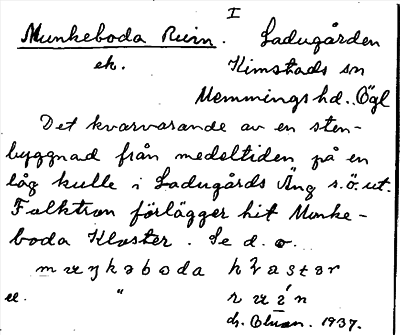 I
Munkeboda Ruin. Ladugården
ek. Kimstads sn
Memmings hd. Ögl
Det kvarvarande av en sten-
byggnad från medeltiden på en
låg kulle i Ladugårds Äng s.ö. ut.
Folktron förlägger hit Munke-
boda Kloster. Se d. o.
muŋkəboda
el. "
dz. 1937.